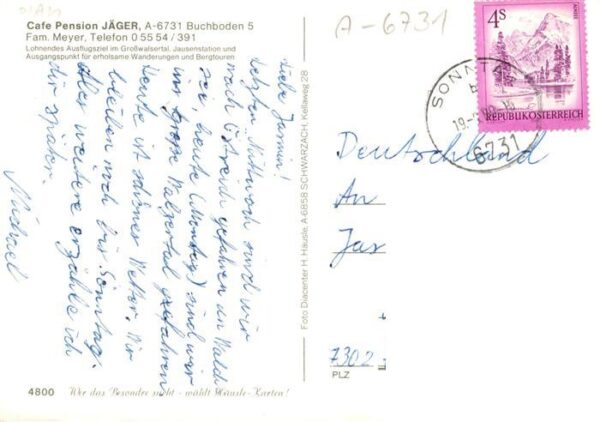 Cafe Pension JÄGER, A-6731 Buchboden 5
Fam. Meyer, Telefon 0 55 54 / 391
Lohnendes Ausflugsziel im Großwalsertal. Jausenstation und
Ausgangspunkt für erholsame Wanderungen und Bergtouren
Liebe Jasmin!
letzten Mittwoch sind wir
nach Östreich gefahren im Wald
sei, heute (Montag) sind wir
ins große Walsertal gefahren
Heute ist schönes Wetter. Wir
bleiben noch bis Sonntag.
Alles weitere erzähle ich
dir später.
Michael
4800 Wer das Besondre sucht - wählt Häusle-Karten!
Foto Diacenter H. Häusle, A-6858 SCHWARZACH, Kellaweg 28
A-6731
4S
REPUBLIK ÖSTERREICH
SONNT
6731
Deutschland
An
Jas
7302
PLZ